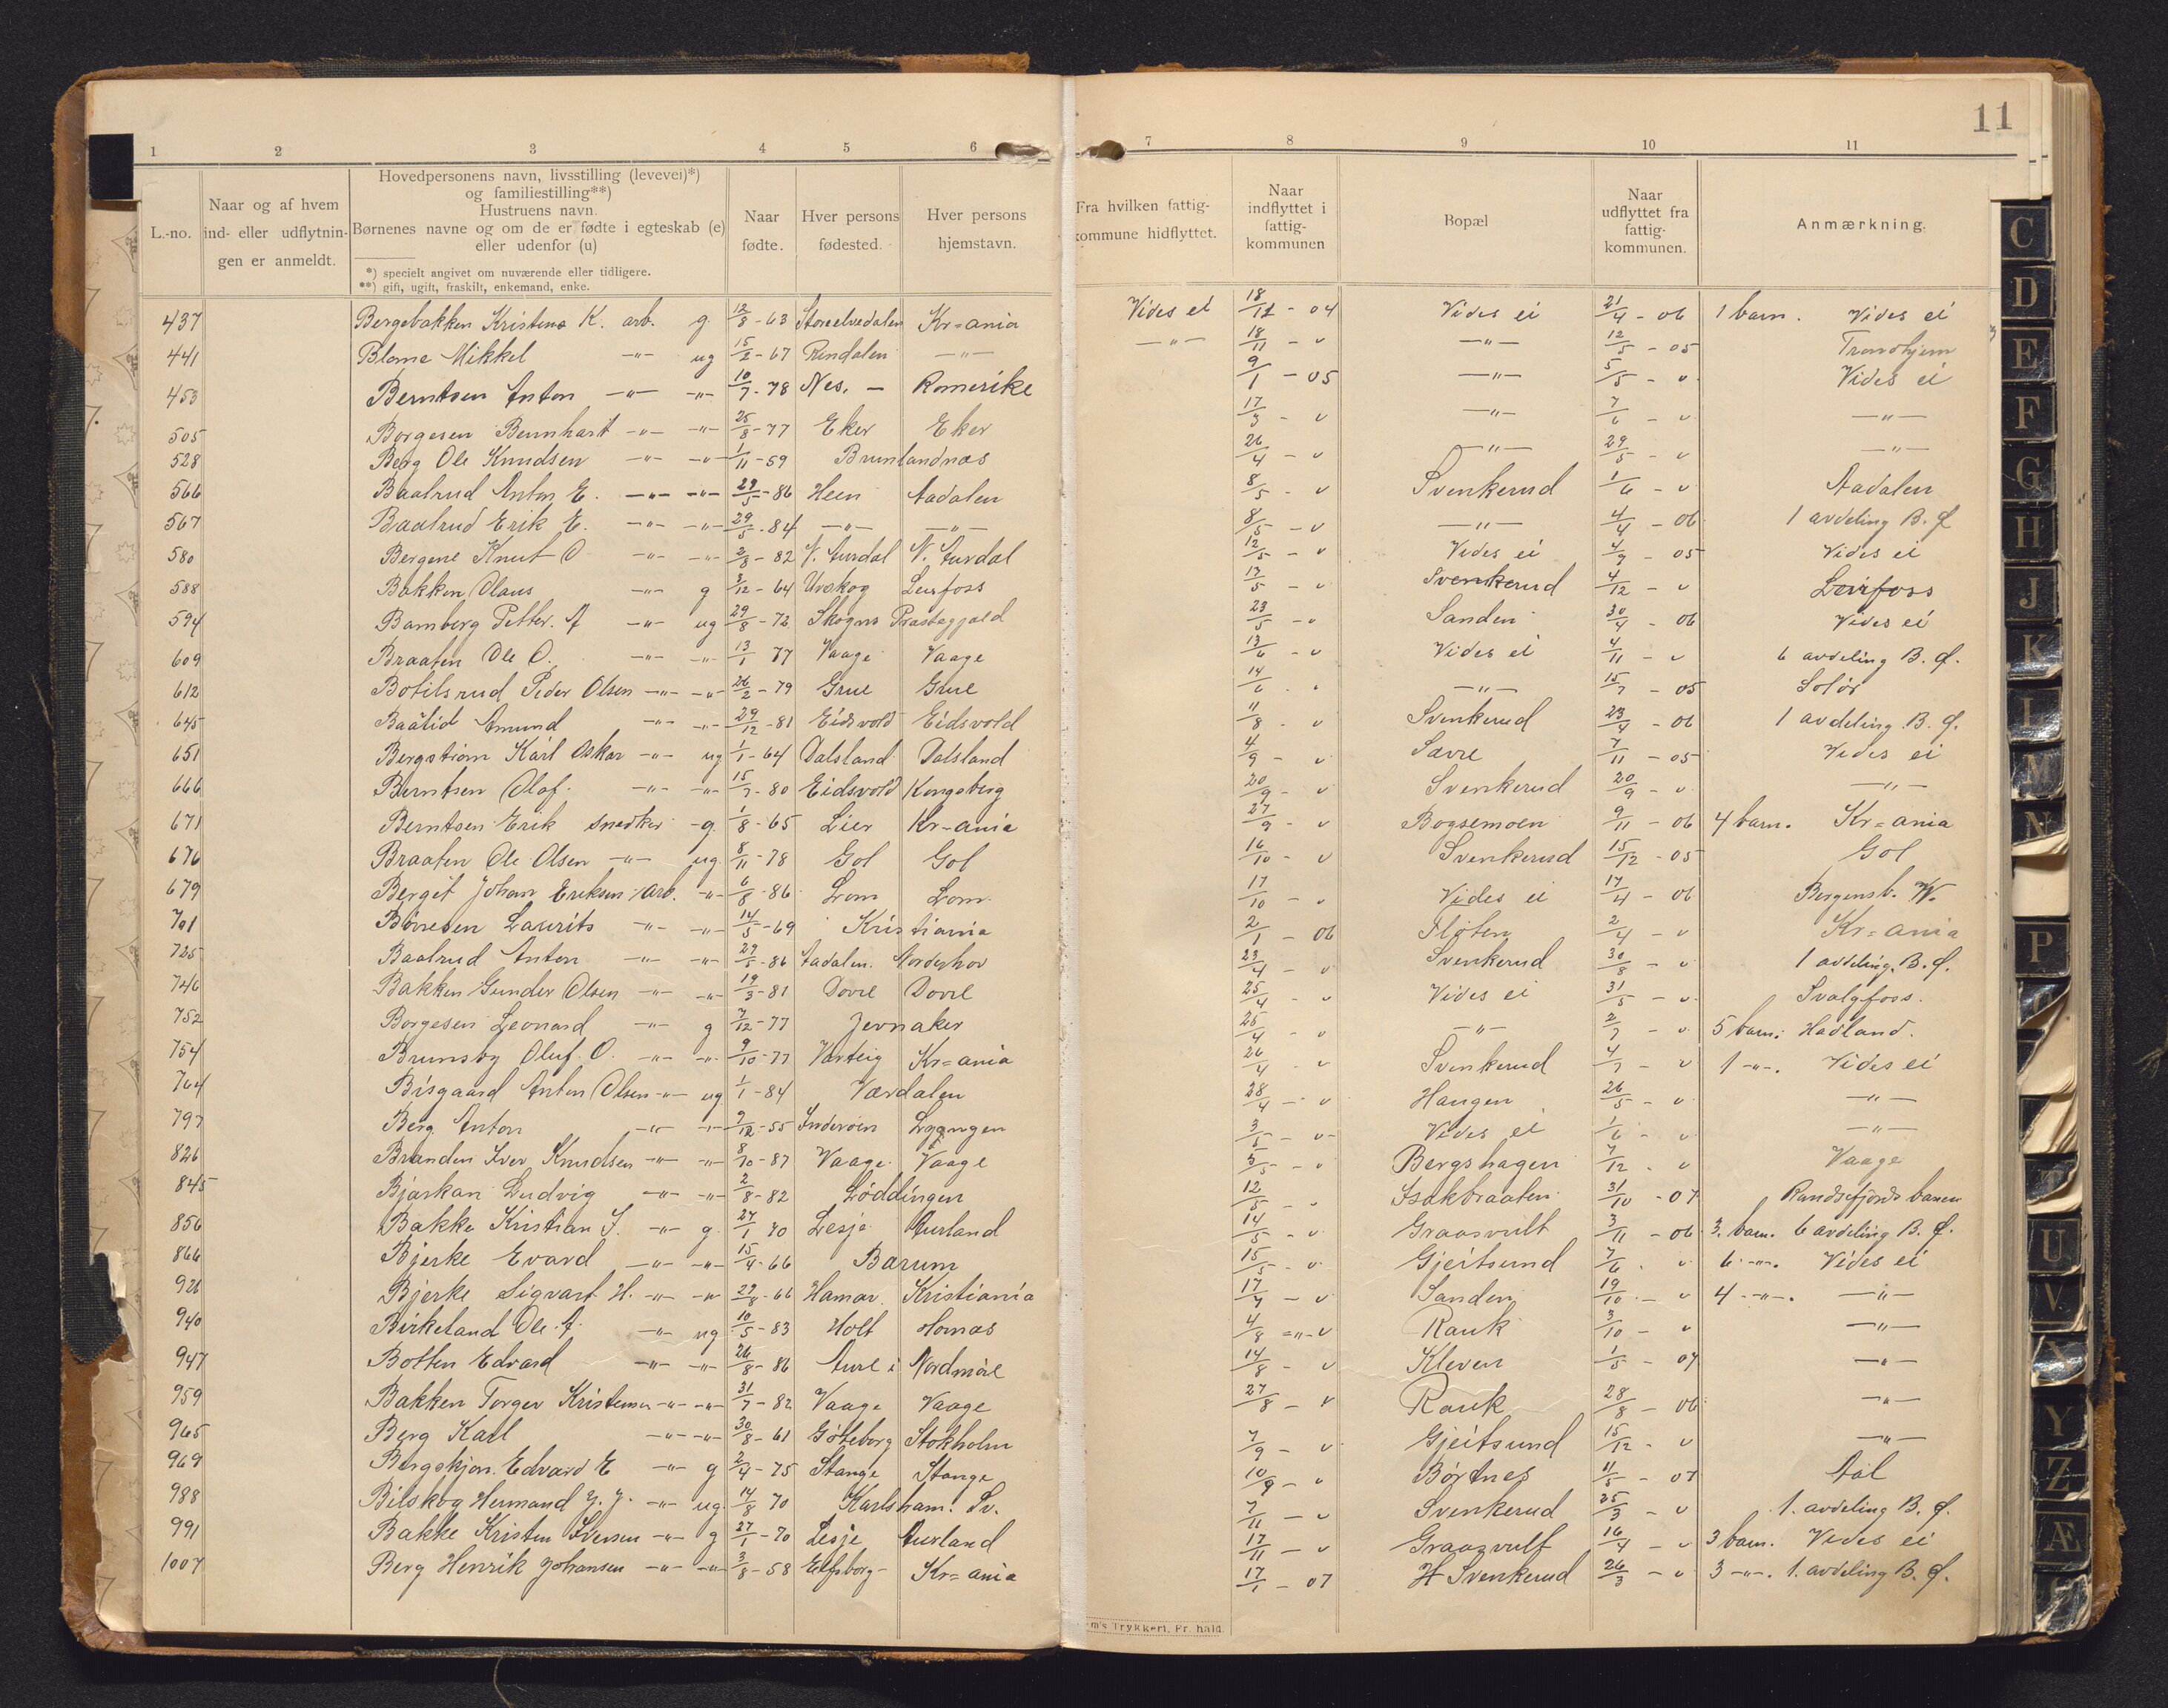 11
1 2 3 4 5 6 7 8 9 10 11
L.-no.
Naar og af hvem
ind- eller udflytnin-
gen er anmeldt.
Hovedpersonens navn, livsstilling (levevei)*)
og familiestilling**)
Hustruens navn.
Børnenes navne og om de er fødte i egteskab (e)
eller udenfor (u)
*) specielt angivet om nuværende eller tidligere.
**) gift, ugift, fraskilt, enkemand, enke.
Naar
fødte.
Hver persons
fødested.
Hver persons
hjemstavn.
Fra hvilken fattig-
kommune hidflyttet.
Naar
indflyttet i
fattig-
kommunen
Bopæl
Naar
udflyttet fra
fattig-
kommunen.
Anmærkning.
437 Bergebakken Kristens K. arb. g. 12/8-63 Storelvedalen Kr=ania Vides ei 18/11-04 Vides ei 21/4-06 1 barn. Vides ei
441 Blome Mikkel -"- ug 15/2-67 Rendalen -"- -"- 18/11-" -"- 12/5-05 Trondhjem
453 Berntsen Anton -"- -"- 10/7-78 Nes. - Romerike 9/1-05 -"- 5/5-" Vides ei
505 Borgesen Bernhart -"- -"- 25/8-77 Eker Eker 17/3-" -"- 7/6-" -"-
528 Berg Ole Knudsen -"- -"- 1/11-59 Brunlandnæs 26/4-" -"- 29/5-" -"-
566 Baalrud Anton E. -"- -"- 29/5-86 Heen Aadalen 8/5-" Svenkerud 1/6-" Aadalen
567 Baalrud Erik E. -"- -"- 29/5-84 -"- -"- 8/5-" -"- 4/4-06 1 avdeling B. Ø
580 Bergene Knut O -"- -"- 2/8-82 N. Aurdal N. Aurdal 12/5-" Vides ei 4/9-05 Vides ei
588 Bakken Olaus -"- g 3/12-64 Urskog Leirfoss 13/5-" Svenkerud 4/12-" Leirfoss
594 Bamberg Petter. A -"- ug 29/8-72 Skogns Præstegjæld 23/5-" Sanden 30/4-06 Vides ei
609 Braaten Ole O. -"- -"- 13/1 77 Vaage Vaage 13/6-" Vides ei 4/11-" 6 avdeling B. Ø.
612 Botilsrud Peder Olsen -"- -"- 26/2-79 Grue Grue 14/6 . " -"- 15/7-05 Solør
645 Baãlid Amund -"- -"- 29/12-81 Eidsvold Eidsvold 11/8 . " Svenkerud 23/4-06 1 avdeling B. Ø.
651 Bergstrøm Karl Oskar -"- ug 1/1-64 Dalsland Dalsland 4/9-" Sævre 7/11-05 Vides ei
666 Berntsen Olaf. -"- -"- 15/7-80 Eidsvold Kongsberg 20/9-" Svenkerud 20/9-" -"-
671 Berntsen Erik snedker -g. 1/8-65 Lier Kr-ania 27/9-" Bogsemoen 9/11-06 4 barn. Kr=ania
676 Braaten Ole Olsen -"- ug. 8/11-78 Gol Gol 16/10-" Svenkerud 15/12-05 Gol
679 Berget Johan Eriksen arb. -"- 6/8-86 Lom Lom. 17/10-" Vides ei 17/4-06 Bergensb. W.
701 Børresen Laurits -"- -"- 14/5-69 Kristiania 2/1-06 Fløten 2/4-" Kr=ania
725 Baalrud Anton -"- -"- 29/5-86 Aadalen. Norderhov 23/4-" Svenkerud 30/8-" 1 avdeling. B. Ø.
746 Bakken Gunder Olsen -"- -"- 19/3-81 Dovre Dovre 25/4-" Vides ei 31/5-" Svalgfoss.
752 Borgesen Leonard -"- g 7/12-77 Jevnaker 25/4-" -"- 2/7-" 5 barn: Hadland.
754 Brunsby Oluf. O. -"- -"- 9/10-77 Varteig Kr=ania 26/4-" Svenkerud 4/7-" 1 -"-. Vides ei
764 Bisgaard Anton Olsen -"- ug 1/1-84 Værdalen 28/4-" Haugen 26/5-" -"-
797 Berg Anton -"- -"- 9/12-55 Inderøen 3/5-" Vides ei 1/6-" -"-
826 Branden Iver Knudsen -"- -"- 8/10-87 Vaage Vaage 3/5-" Bergshagen 7/12-" Vaage
845 Bjarkan Ludvig -"- -"- 2/8-82 Løddingen 12/5-" Isakbraaten 31/10-07 Randsfjords banen
856 Bakke Kristian I. -"- g. 27/1 70 Lesje Aurland 14/5-" Graasvult 3/11-06 3. barn. 6 avdeling B. Ø.
866 Bjerke Evard -"- -"- 15/4-66 Bærum 15/5-" Gjeitsund 7/6-" 6 -"-. Vides ei
926 Bjerke Sigvart H. -"- -"- 29/8-66 Hamar. Kristiania 17/7-" Sanden 19/10-" 4 -"-. -"-
940 Birkeland Ole. A. -"- ug 10/5-83 Holt Hornæs 4/8 ="-" Rauk 3/10-" -"-
947 Botten Edvard -"- -"- 26/8-86 Aure i Nordmøre 14/8-" Kleven 1/5-07 -"-
959 Bakken Torger Kristensen -"- -"- 31/7-82 Vaage Vaage 27/8-" Rauk 28/8-06 -"-
965 Berg Karl -"- -"- 30/8-61 Göteborg Stokholm 7/9-" Gjeitsund 15/12-" -"-
969 Edvard E -"- g 2/4-75 Stange Stange 10/9-" Børtnes 11/5-07 Aal
988 Bilskog Hermand J. J. -"- ug. 14/8 70 Karlsham. Sv. 7/11-" Svenkerud 25/3-" 1. avdeling B. Ø.
991 Bakke Kristen Iversen -"- g 27/1-70 Lesje Aurland 17/11-" Graasvult 16/4-" 3 barn. Vides ei
1007 Berg Henrik Johansen -"- -"- 3/8-58 Elfsborg- Kr=ania 17/1-07 H Svenkerud 26/3-" 3 -"-. 1. avdeling B. Ø.
m's Trykkeri, Fr. hald.
C
D
E
F
G
H
J
K
L
M
N
P
U
V
X
Y
Z
Æ